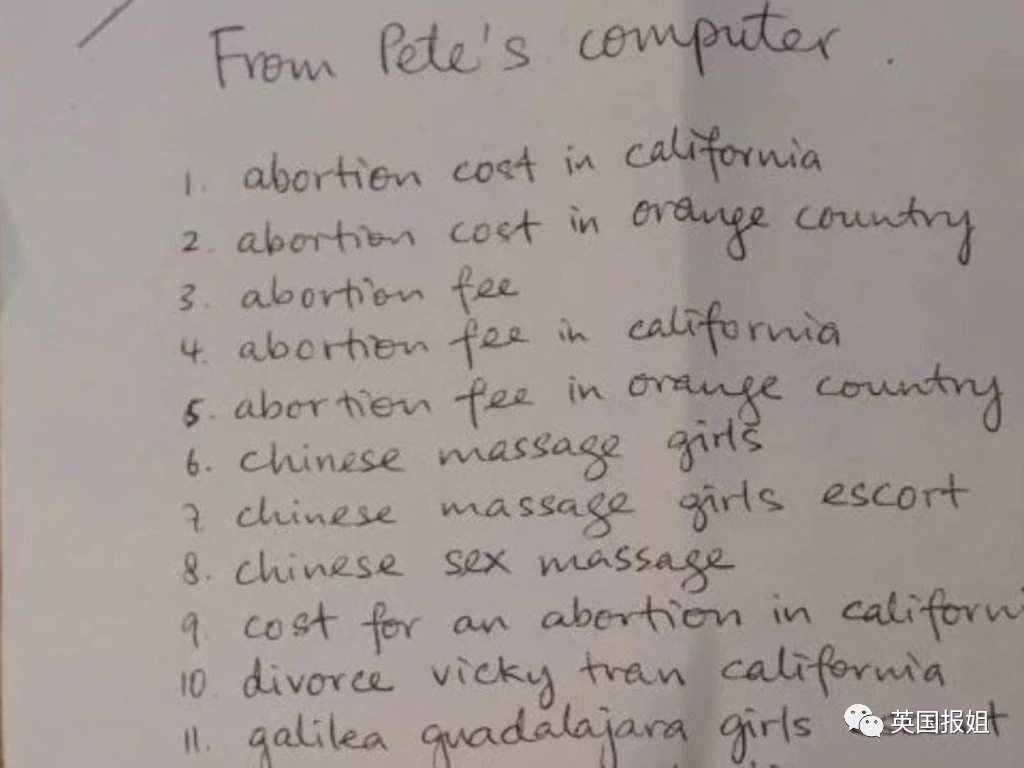 From Pete's computer.
1. abortion cost in california
2. abortion cost in orange country
3. abortion fee
4. abortion fee in california
5. abortion fee in orange country
6. chinese massage girls
7. chinese massage girls escort
8. chinese sex massage
9. cost for an abortion in californi
10. divorce vicky tran california
11. galilea guadalajara girls
英国报姐